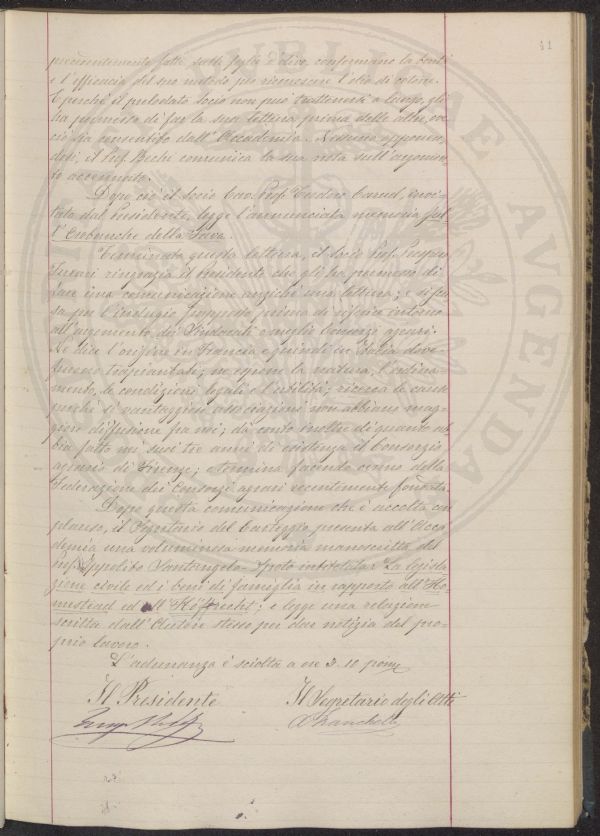 11
precedentemente fatti sulle foglie d'olivo, confermano la bontà
e l'efficacia del suo metodo per riconoscere l'olio di cotone.
E perché il prelodato socio non può trattenersi a lungo, gli
ha promesso di far la sua lettura prima delle altre, ove
ciò sia consentito dall'Accademia. Nessuno opponen-
dosi, il Prof. Bechi comunica la sua nota sull'argomen-
to accennato.
Dopo ciò il Socio Cav. Prof. Teodoro Caruel, invi-
tato dal Presidente, legge l'annunciata memoria sul-
l'Orobanche della Fava.
Terminata questa lettura, il Socio Prof.
ringrazia il Presidente che gli ha permesso di
fare una comunicazione anziché una lettura; e si
sa per l'orologio prima di riferire intorno
all'argomento dei Sindacati o meglio Consorzi agrari.
Ne dice l'origine in Francia e quindi in Italia dove
furono trapiantati; ne espone la natura, l'ordina-
mento, le condizioni legali e l'utilità; ricerca le cause
perché sì vantaggiose associazioni non abbiano mag-
giore diffusione fra noi; dà conto inoltre di quanto ab-
bia fatto nei suoi tre anni di esistenza il Consorzio
agrario di Firenze; e termina facendo cenno della
Federazione dei Consorzi agrari recentemente fondata.
Dopo questa comunicazione che è accolta con
plauso, il Segretario del Carteggio presenta all'Acca-
demia una voluminosa memoria manoscritta del
Prof. Ippolito Santangelo-Spoto intitolata: La legisla-
zione civile ed i beni di famiglia in rapporto all'Ho-
mestead ed all'Höferecht; e legge una relazione
scritta dall'Autore stesso per dar notizia del pro-
prio lavoro.
L'adunanza è sciolta a ore 3.10 pom.
Il Presidente Il Segretario degli Atti